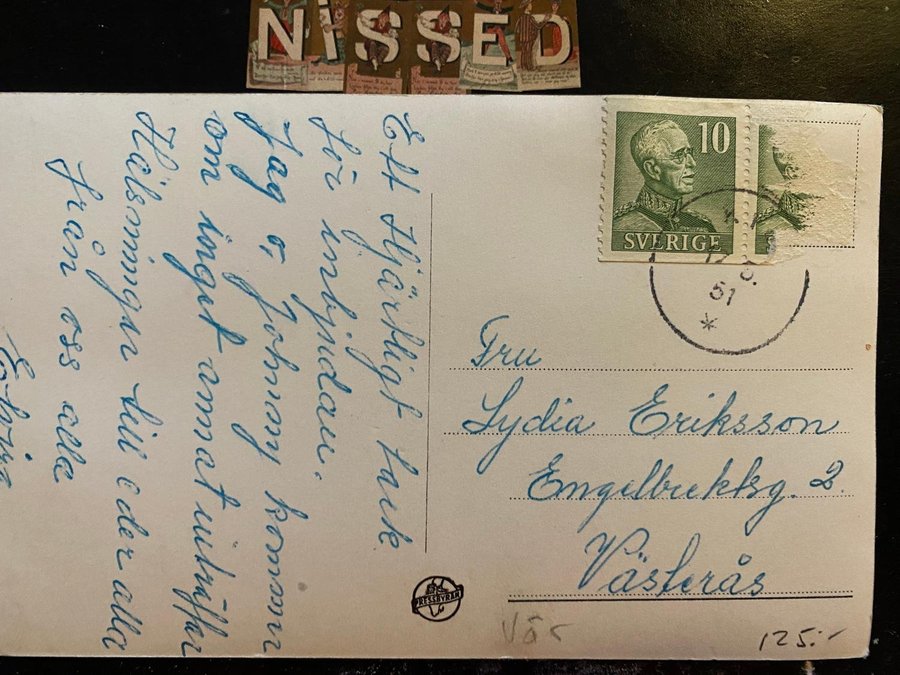 NISSED
Ett Hjärtligt tack
för inbjudan.
Jag o Johnny kommer
om inget annat inträffar
Hälsningar till eder alla
från oss alla
10
SVERIGE
51
Fru
Lydia Eriksson
Engelbrektsg. 2.
Västerås
PRESSBYRÅN
125:-